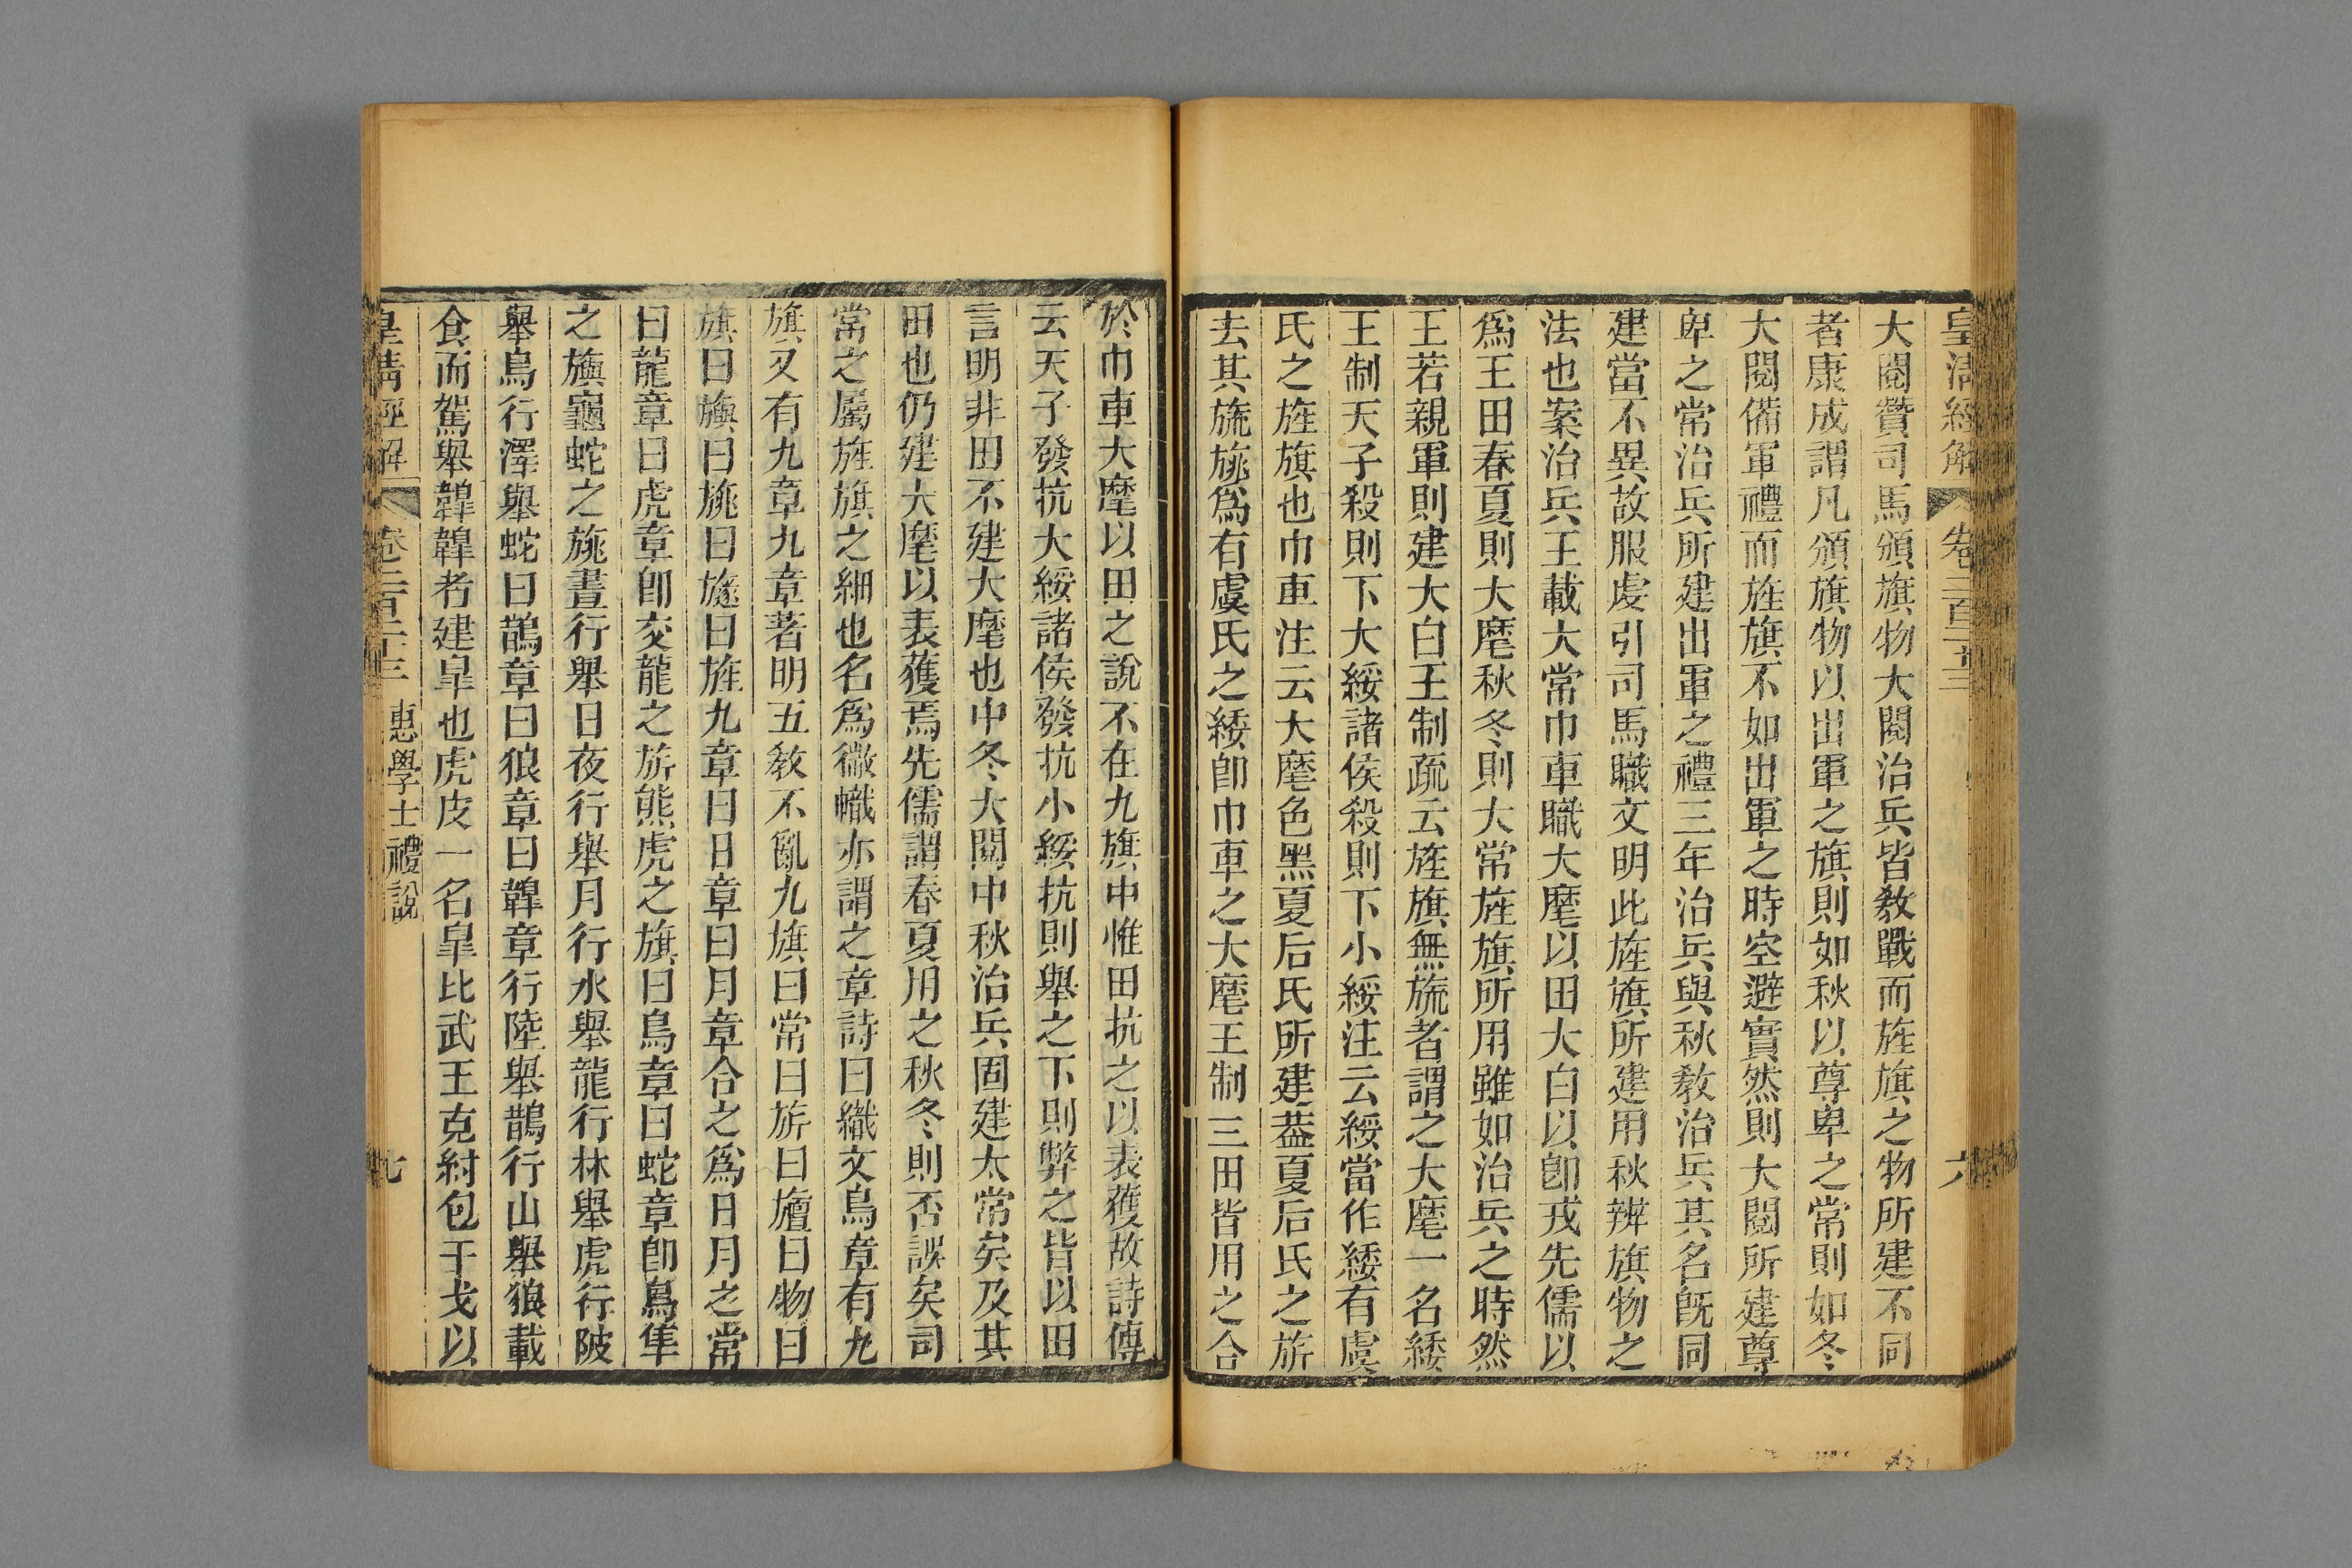 皇清經解 卷二百二十三 六
大閱贊司馬頒旗物大閱治兵皆敎戰而旌旗之物所建不同
者康成謂凡頒旗物以出軍之旗則如秋以尊卑之常則如冬
大閱備軍禮而旌旗不如出軍之時空避實然則大閱所建尊
卑之常治兵所建出軍之禮三年治兵與秋敎治兵其名旣同
建當不異故服虔引司馬職文明此旌旗所建用秋辨旗物之
法也案治兵王載大常巾車職大麾以田大白以卽戎先儒以
爲王田春夏則大麾秋冬則大常旌旗所用雖如治兵之時然
王若親軍則建大白王制疏云旌旗無旒者謂之大麾一名緌
王制天子殺則下大綏諸侯殺則下小綏注云綏當作緌有虞
氏之旌旗也巾車注云大麾色黑夏后氏所建葢夏后氏之旂
去其旒旐爲有虞氏之緌卽巾車之大麾王制三田皆用之合
於巾車大麾以田之說不在九旗中惟田抗之以表獲故詩傳
云天子發抗大綏諸侯發抗小綏抗則舉之下則弊之皆以田
言明非田不建大麾也中冬大閱中秋治兵固建太常矣及其
田也仍建大麾以表獲焉先儒謂春夏用之秋冬則否誤矣司
常之屬旌旗之細也名爲徽幟亦謂之章詩曰織文鳥章有九
旗又有九章九章著明五敎不亂九旗曰常曰旂曰旜曰物曰
旗曰旟曰旐曰旞曰旌九章曰日章曰月章合之爲日月之常
曰龍章曰虎章卽交龍之旂熊虎之旗曰鳥章曰蛇章卽鳥隼
之旟龜蛇之旐晝行舉日夜行舉月行水舉龍行林舉虎行陂
舉鳥行澤舉蛇曰鵲章曰狼章曰韟章行陸舉鵲行山舉狼載
食而駕舉韟韟者建皐也虎皮一名皐比武王克紂包干戈以
皇清經解 卷二百二十三 惠學士禮說 七